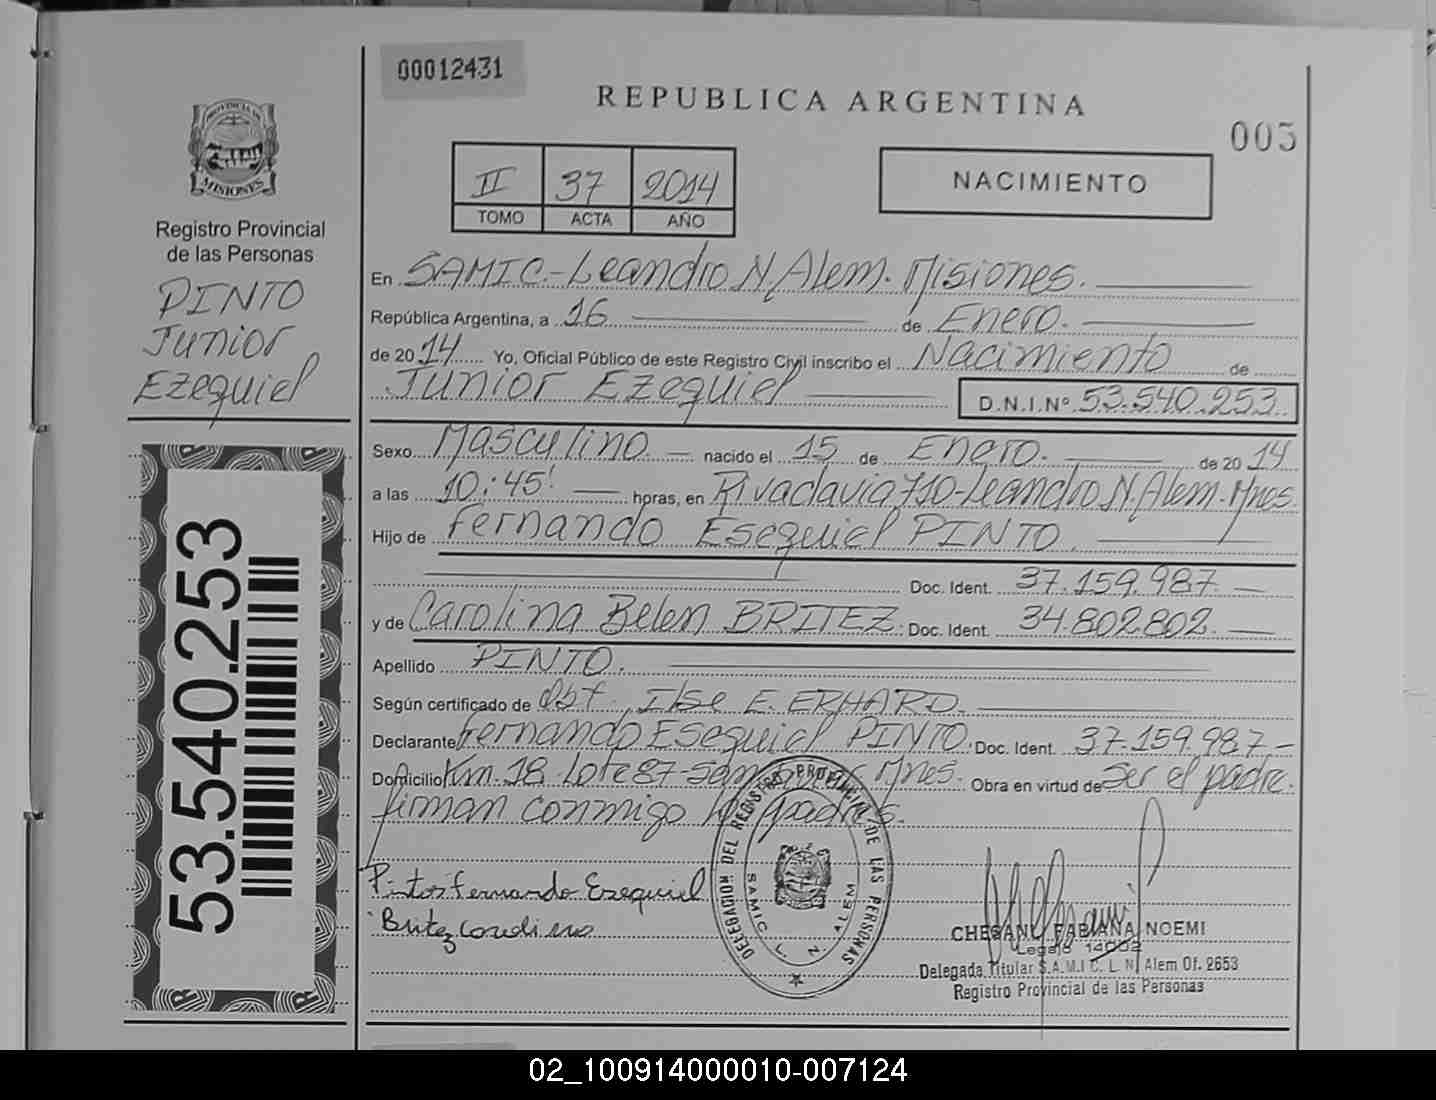 00012431
REPUBLICA ARGENTINA
005
PROVINCIA DE
MISIONES
II 37 2014
TOMO ACTA AÑO
NACIMIENTO
Registro Provincial
de las Personas
PINTO
Junior
Ezequiel
En SAMIC.-Leandro N Alem. Misiones.
República Argentina, a 16 de Enero.
de 2014 Yo, Oficial Público de este Registro Civil inscribo el Nacimiento de
Junior Ezequiel
D.N.I.Nº 53.540.253
Sexo Masculino. nacido el 15 de Enero. de 2014
a las 10:45' horas, en Rivadavia 710-Leandro N. Alem-Mnes.
Hijo de Fernando Esequiel PINTO.
Doc. Ident. 37.159.987.
y de Carolina Belen BRITEZ. Doc. Ident. 34.802802.
Apellido PINTO.
Según certificado de Obst. Ilse E. ERHARD.
Declarante Fernando Esequiel PINTO. Doc. Ident. 37.159.987-
Domicilio Km. 18. Lote 87- Mnes. Obra en virtud de Ser el padre.
firman conmigo los padres.
Fernando Ezequiel
Britez
DELEGACION DEL REGISTRO PROVINCIAL DE LAS PERSONAS
SAMIC L. N. ALEM
FABIANA NOEMI
Legajo
Delegada Titular S.A.M.I.C. L. N. Alem Of. 2653
Registro Provincial de las Personas
53.540.253
02_100914000010-007124